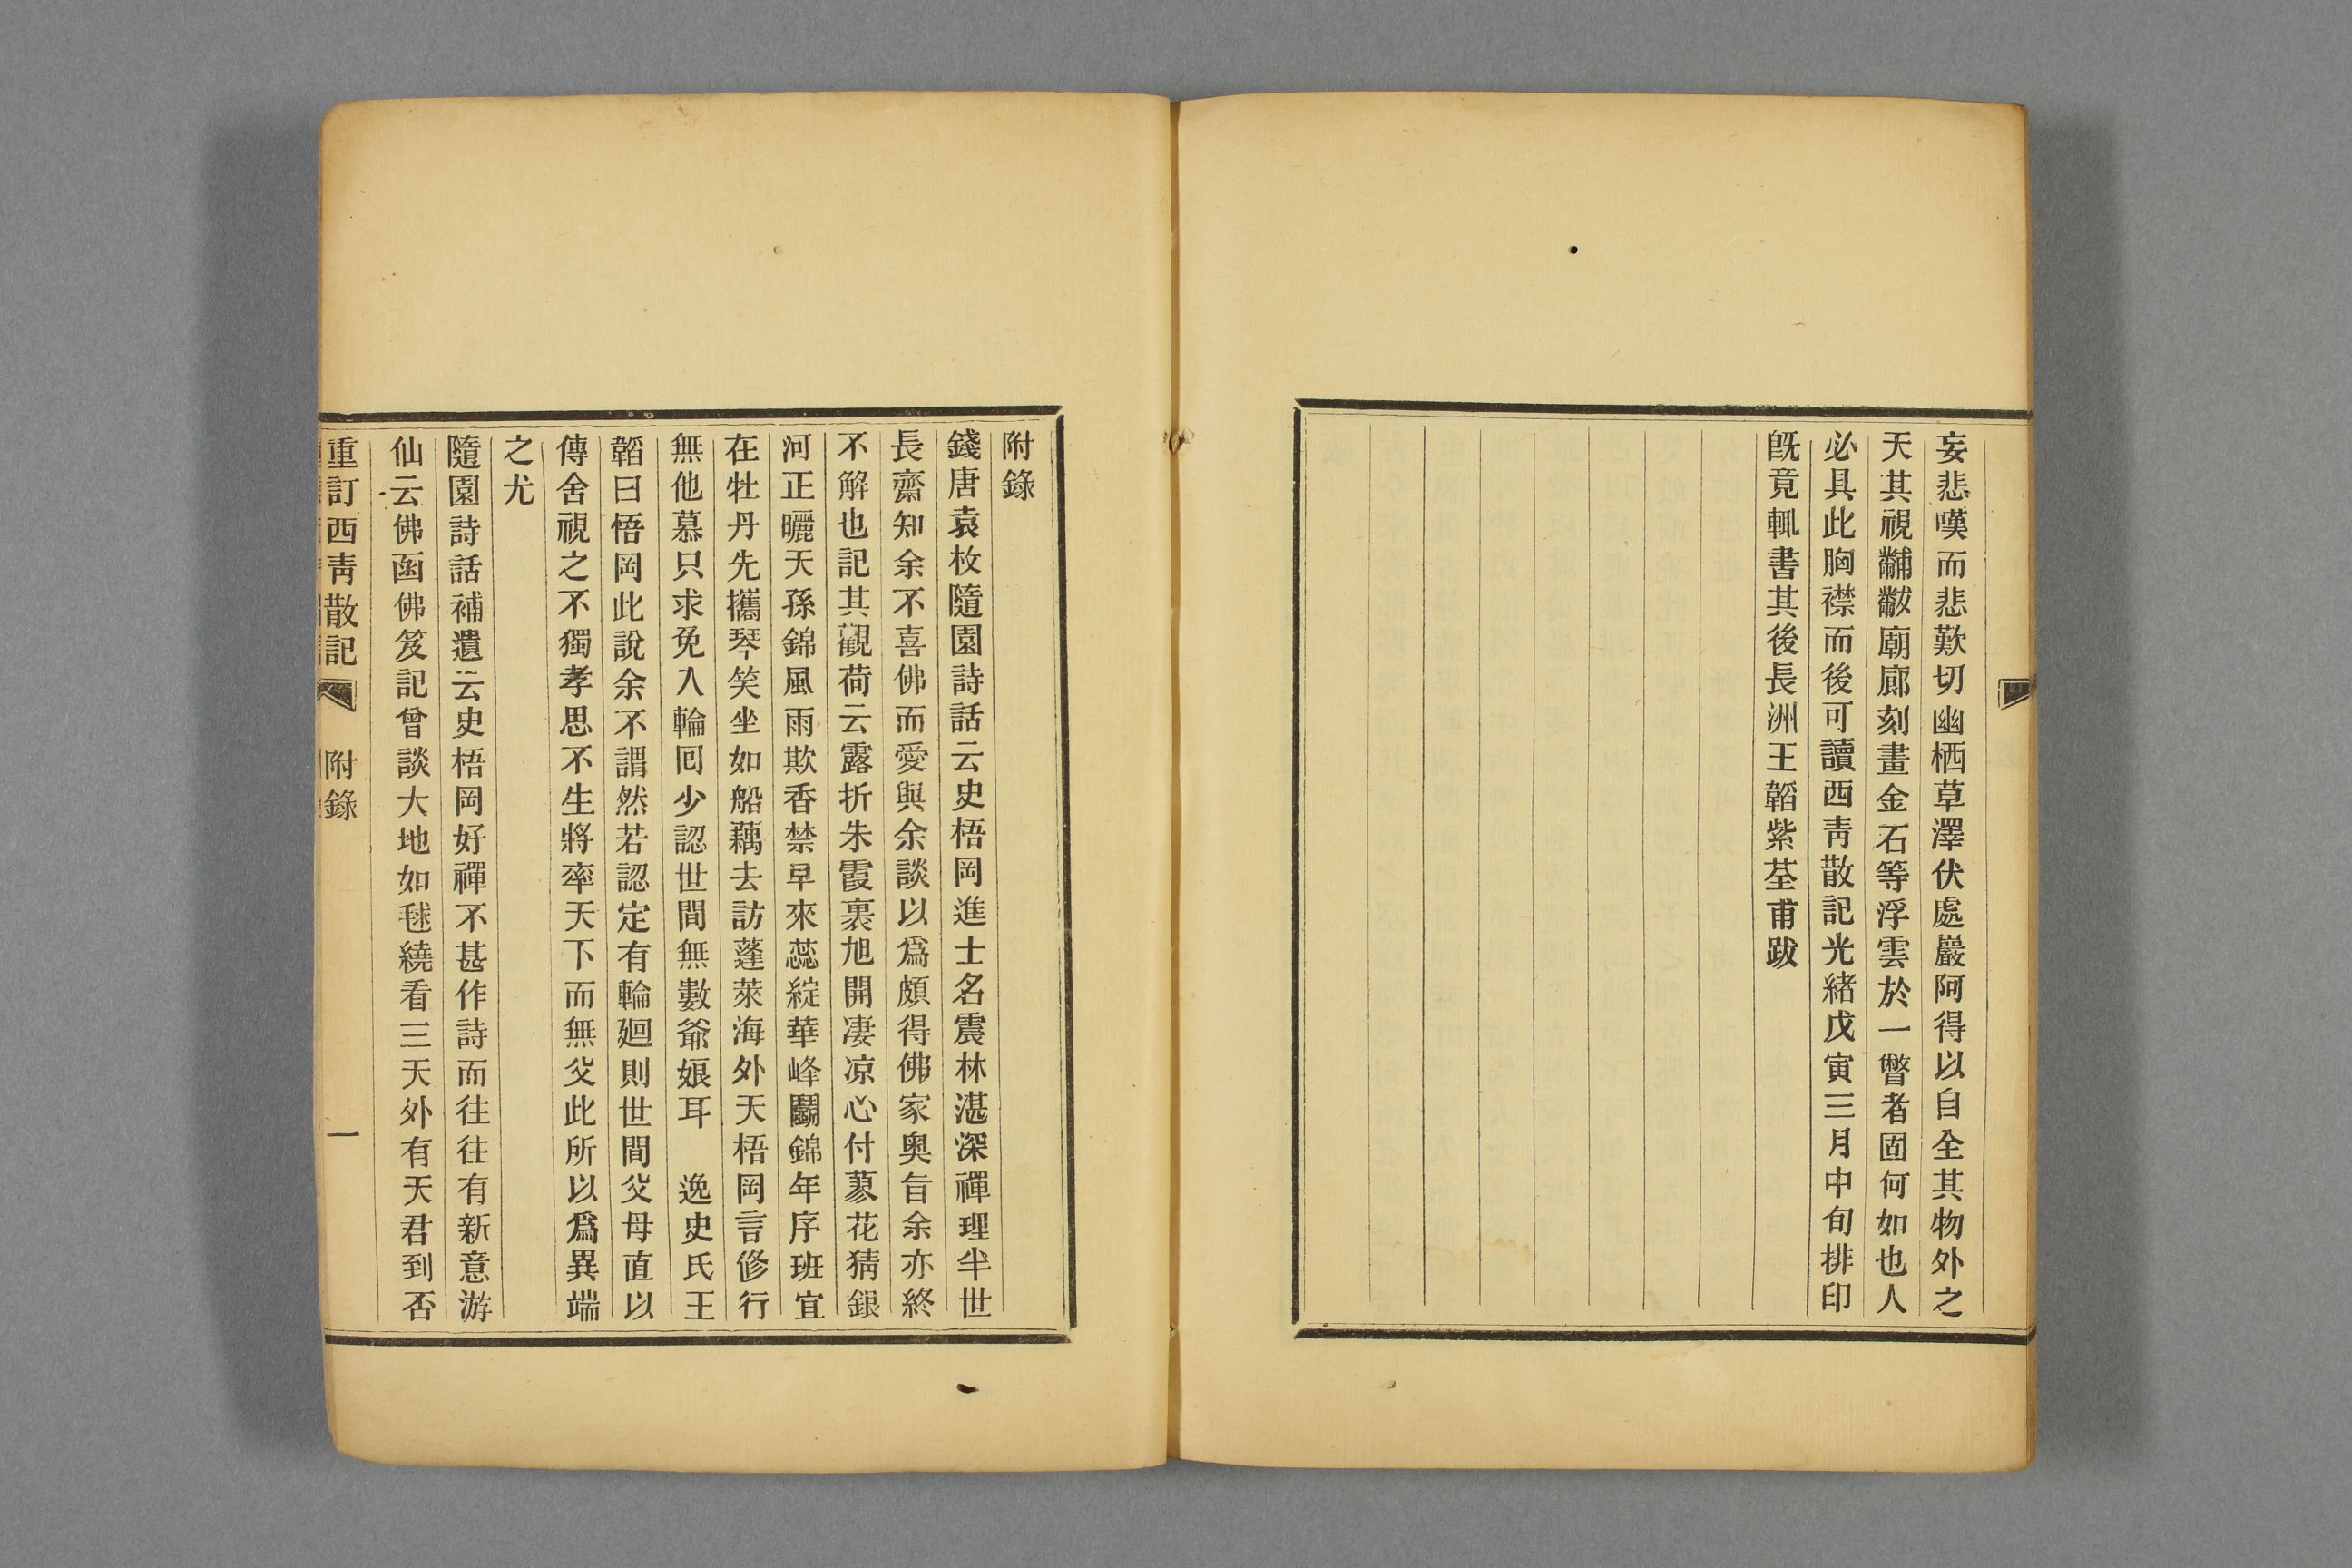 妄悲嘆而悲歎切幽栖草澤伏處巖阿得以自全其物外之
天其視黼黻廟廊刻畫金石等浮雲於一瞥者固何如也人
必具此胸襟而後可讀西靑散記光緖戊寅三月中旬排印
旣竟輒書其後長洲王韜紫荃甫跋
附錄
錢唐袁枚隨園詩話云史梧岡進士名震林湛深禪理半世
長齋知余不喜佛而愛與余談以爲頗得佛家奧旨余亦終
不解也記其觀荷云露折朱霞裹旭開凄凉心付蓼花猜銀
河正曬天孫錦風雨欺香禁早來蕊綻華峰鬭錦年序班宜
在牡丹先攜琴笑坐如船藕去訪蓬萊海外天梧岡言修行
無他慕只求免入輪囘少認世間無數爺娘耳　逸史氏王
韜曰悟岡此說余不謂然若認定有輪廻則世間父母直以
傳舍視之不獨孝思不生將率天下而無父此所以爲異端
之尤
隨園詩話補遺云史梧岡好禪不甚作詩而往往有新意游
仙云佛函佛笈記曾談大地如毬繞看三天外有天君到否
重訂西靑散記　附錄　一